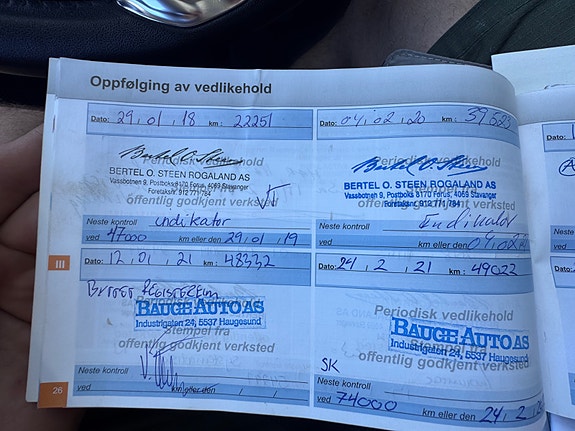 Oppfølging av vedlikehold
Dato: 29.01.18 km: 22251
Periodisk vedlikehold
BERTEL O. STEEN ROGALAND
Vassbotnen 9, Postboks 8170 Forus, 4069 Stavanger
Foretaksnr. 912 771 784
offentlig godkjent verksted
Neste kontroll indikator
ved 47000 km eller den 29.01.19
Dato: 04.02.20 km: 39.523
Periodisk vedlikehold
BERTEL O. STEEN ROGALAND AS
Vassbotnen 9, Postboks 8170 Forus, 4069 Stavanger
Foretaksnr. 912 771 784
offentlig godkjent verksted
Neste kontroll Indikator
ved km eller den 04.02
III
Dato: 12.01.21 km: 48332
Periodisk vedlikehold
BAUGE AUTO AS
Industrigaten 24, 5537 Haugesund
Stempel fra
offentlig godkjent verksted
Neste kontroll
ved km eller den
Dato: 24.2.21 km: 49022
Periodisk vedlikehold
BAUGE AUTO AS
Industrigaten 24, 5537 Haugesund
Stempel fra
offentlig godkjent verksted
SK
Neste kontroll
ved 74000 km eller den 24.2.
26